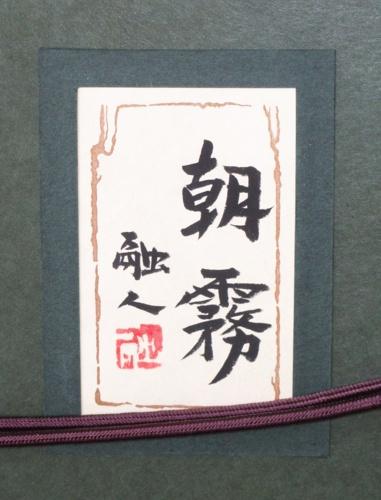 朝霧
融人